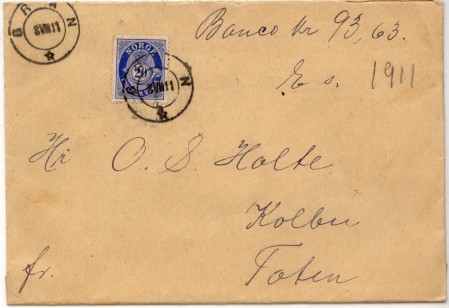 GRAN
8 VIII 11
NORGE
20
GRAN
8 VIII 11
Banco Kr 93,63.
E s.
1911
Hr O. S. Holte
Kolbu
fr. Toten